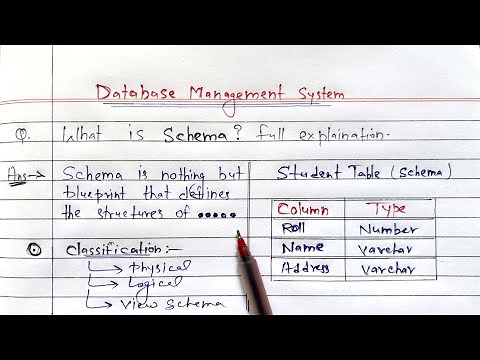 Database Management System
Q. What is Schema? full explaination.
Ans→ Schema is nothing but
blueprint that defines
the structures of .....
Classification:-
Physical
Logical
View Schema
Student Table (Schema)
Column Type
Roll Number
Name Varchar
Address Varchar